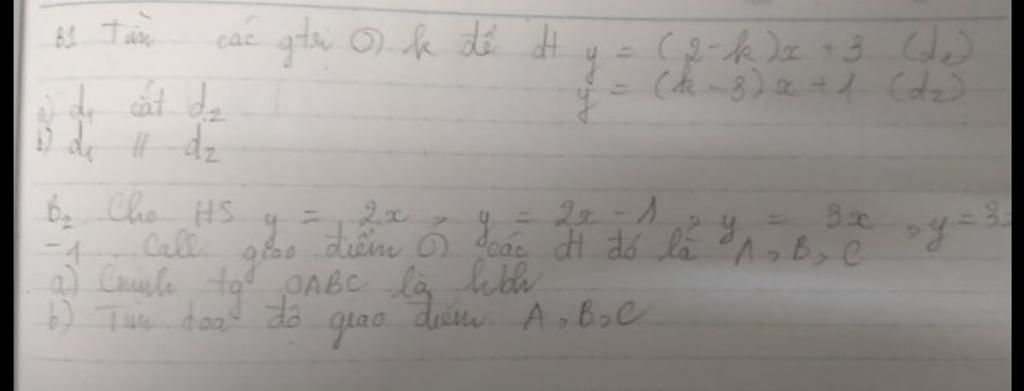 B1 Tìm các gtrị ⊙ k để đt y = (2-k)x + 3 (d₁)
y = (k - 3)x + 1 (d₂)
a) d₁ cắt d₂
b) d₁ // d₂
B₂ Cho HS y = 2x, y = 2x - 1, y = 3x, y = 3x
-1. Call giao điểm ⊙ các đt đó là A, B, C
a) Cminh tg OABC là hbh
b) Tìm toạ độ giao điểm A, B, C